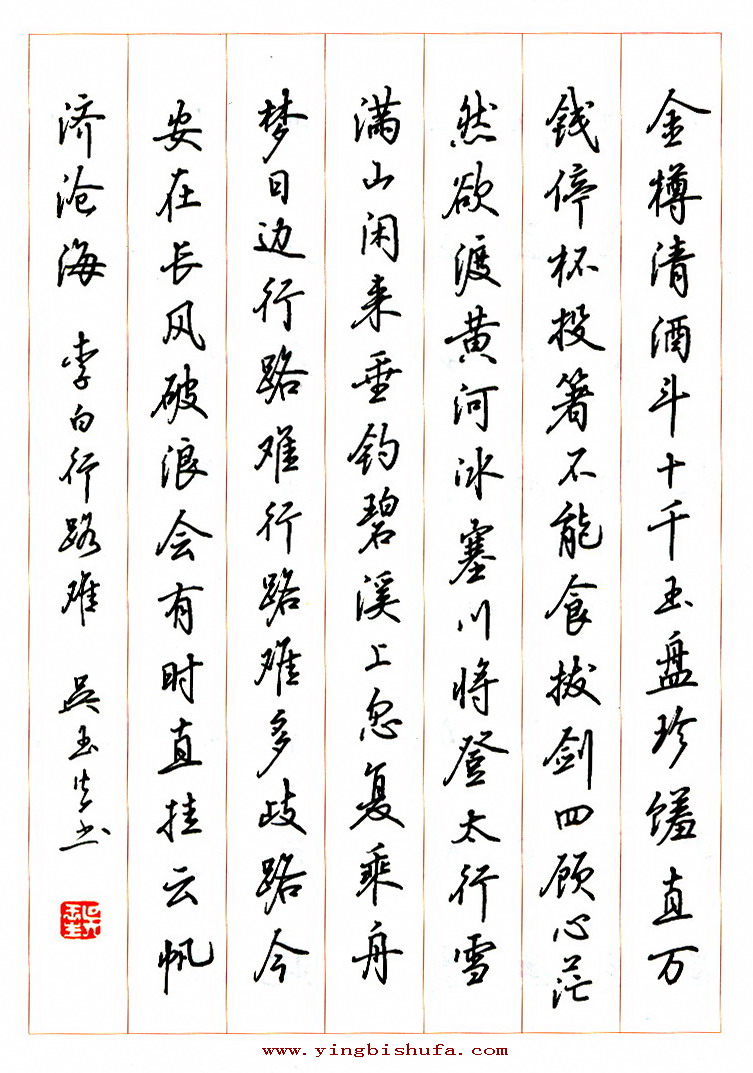 金樽清酒斗十千玉盘珍馐直万
钱停杯投箸不能食拔剑四顾心茫
然欲渡黄河冰塞川将登太行雪
满山闲来垂钓碧溪上忽复乘舟
梦日边行路难行路难多歧路今
安在长风破浪会有时直挂云帆
济沧海 李白行路难 吴玉生书
www.yingbishufa.com